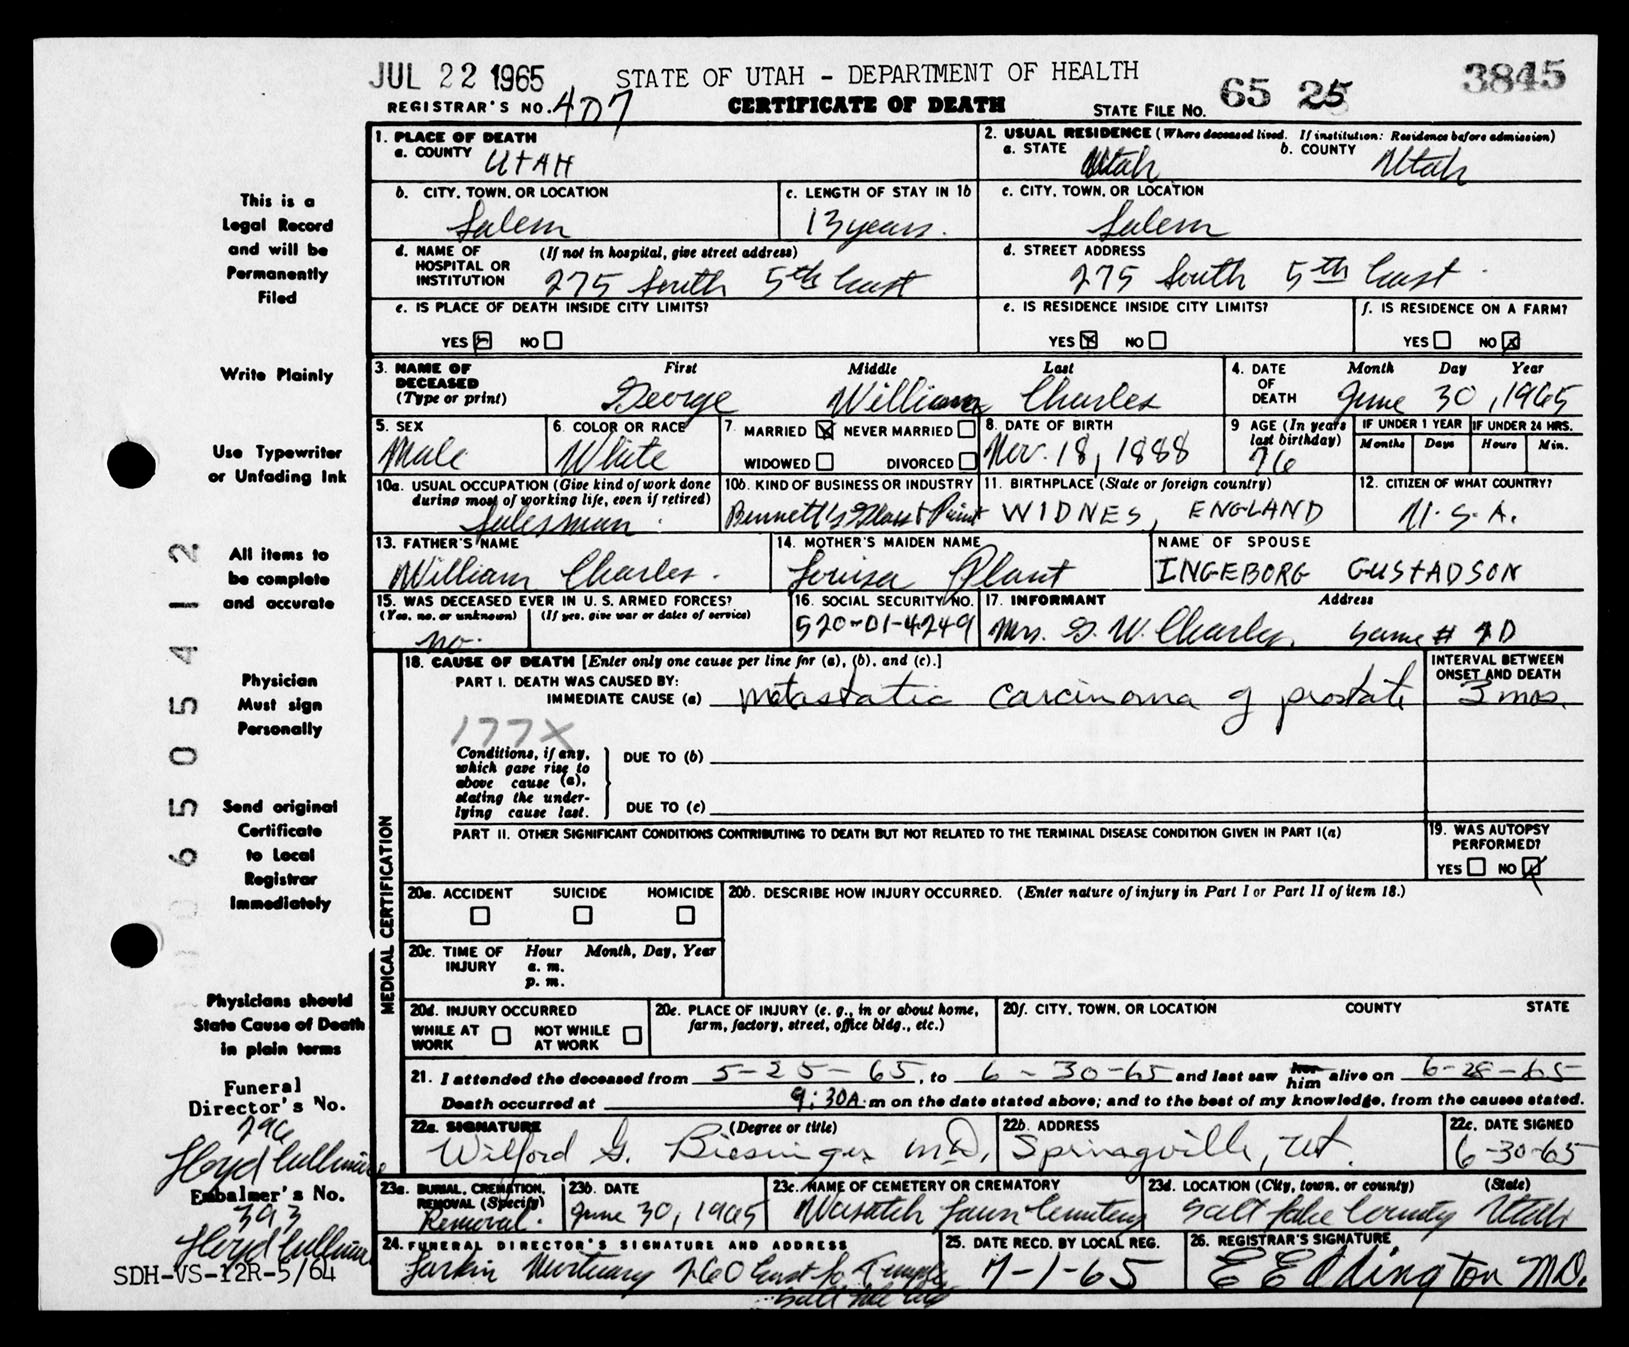 JUL 22 1965
STATE OF UTAH - DEPARTMENT OF HEALTH
3845
REGISTRAR'S NO. 407
CERTIFICATE OF DEATH
STATE FILE NO. 65 25
1. PLACE OF DEATH
a. COUNTY UTAH
2. USUAL RESIDENCE (Where deceased lived. If institution: Residence before admission)
a. STATE Utah b. COUNTY Utah
b. CITY, TOWN, OR LOCATION Salem
c. LENGTH OF STAY IN 1b 13 years.
c. CITY, TOWN, OR LOCATION Salem
d. NAME OF HOSPITAL OR INSTITUTION (If not in hospital, give street address) 275 South 5th East
d. STREET ADDRESS 275 South 5th East
e. IS PLACE OF DEATH INSIDE CITY LIMITS?
YES NO
e. IS RESIDENCE INSIDE CITY LIMITS?
YES X NO
f. IS RESIDENCE ON A FARM?
YES NO X
3. NAME OF DECEASED (Type or print)
First Middle Last
George William Charles
4. DATE OF DEATH Month Day Year
June 30, 1965
5. SEX Male
6. COLOR OR RACE White
7. MARRIED X NEVER MARRIED
WIDOWED DIVORCED
8. DATE OF BIRTH Nov. 18, 1888
9 AGE (In years last birthday) 76
IF UNDER 1 YEAR IF UNDER 24 HRS.
Months Days Hours Min.
10a. USUAL OCCUPATION (Give kind of work done during most of working life, even if retired) Salesman.
10b. KIND OF BUSINESS OR INDUSTRY Bennett's Glass & Paint
11. BIRTHPLACE (State or foreign country) WIDNES, ENGLAND
12. CITIZEN OF WHAT COUNTRY? U.S.A.
13. FATHER'S NAME William Charles.
14. MOTHER'S MAIDEN NAME Louisa Plant
NAME OF SPOUSE INGEBORG GUSTADSON
15. WAS DECEASED EVER IN U.S. ARMED FORCES?
(Yes, no, or unknown) (If yes, give war or dates of service)
no.
16. SOCIAL SECURITY NO. 520-01-4249
17. INFORMANT Address
Mrs. G. W. Charles, Same # D
18. CAUSE OF DEATH [Enter only one cause per line for (a), (b), and (c).]
PART I. DEATH WAS CAUSED BY:
IMMEDIATE CAUSE (a) Metastatic carcinoma of prostate
INTERVAL BETWEEN ONSET AND DEATH
3 mos.
177X
Conditions, if any, which gave rise to above cause (a), stating the underlying cause last.
DUE TO (b)
DUE TO (c)
PART II. OTHER SIGNIFICANT CONDITIONS CONTRIBUTING TO DEATH BUT NOT RELATED TO THE TERMINAL DISEASE CONDITION GIVEN IN PART I(a)
19. WAS AUTOPSY PERFORMED?
YES NO X
MEDICAL CERTIFICATION
20a. ACCIDENT SUICIDE HOMICIDE
20b. DESCRIBE HOW INJURY OCCURRED. (Enter nature of injury in Part I or Part II of item 18.)
20c. TIME OF INJURY Hour Month, Day, Year
a. m.
p. m.
20d. INJURY OCCURRED
WHILE AT WORK NOT WHILE AT WORK
20e. PLACE OF INJURY (e. g., in or about home, farm, factory, street, office bldg., etc.)
20f. CITY, TOWN, OR LOCATION COUNTY STATE
21. I attended the deceased from 5-25-65, to 6-30-65 and last saw her him alive on 6-28-65
Death occurred at 9:30A.m on the date stated above; and to the best of my knowledge, from the causes stated.
22a. SIGNATURE (Degree or title)
Wilford G. Biesinger MD,
22b. ADDRESS Springville, Ut.
22c. DATE SIGNED 6-30-65
23a. BURIAL, CREMATION, REMOVAL (Specify) Removal.
23b. DATE June 30, 1965
23c. NAME OF CEMETERY OR CREMATORY Wasatch Lawn Cemetery
23d. LOCATION (City, town, or county) (State)
Salt Lake County Utah
24. FUNERAL DIRECTOR'S SIGNATURE AND ADDRESS
Larkin Mortuary 260 East So Temple
Salt Lake City
25. DATE RECD. BY LOCAL REG. 7-1-65
26. REGISTRAR'S SIGNATURE
E E Eddington M.D.
This is a
Legal Record
and will be
Permanently
Filed
Write Plainly
Use Typewriter
or Unfading Ink
All items to
be complete
and accurate
Physician
Must sign
Personally
Send original
Certificate
to Local
Registrar
Immediately
Physicians should
State Cause of Death
in plain terms
Funeral
Director's No.
296
Floyd
Embalmer's No.
393
Floyd
SDH-VS-12R-5/64
0 6 5 5 0 5 4 1 2